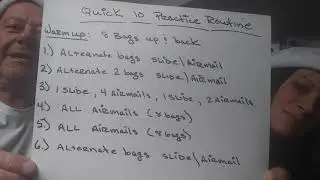 Quick 10 Practice Routine
Warmup: 8 Bags up & back
1.) Alternate bags slide/Airmail
2.) Alternate 2 bags slide/Airmail
3.) 1 slide, 4 Airmails, 1 slide, 2 Airmails
4.) All Airmails (8 bags)
5.) All Airmails (8 bags)
6.) Alternate bags slide/Airmail